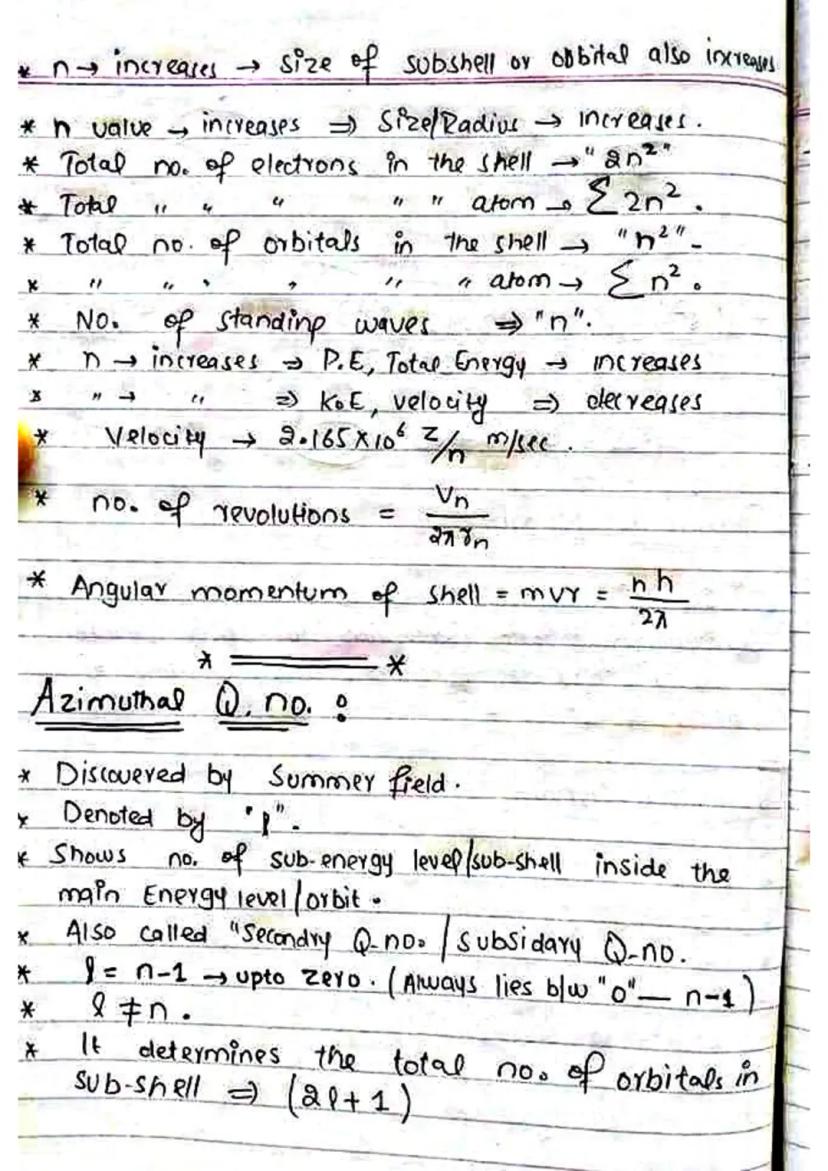 * n → increases → size of subshell or orbital also increases
* n value → increases ⇒ Size/Radius → increases.
* Total no. of electrons in the shell → "2n²"
* Total " " " " " atom → Σ 2n².
* Total no. of orbitals in the shell → "n²"-
* " " " " " " atom → Σ n².
* No. of standing waves ⇒ "n".
* n → increases ⇒ P.E, Total Energy → increases
* " → " ⇒ K.E, velocity ⇒ decreases
* Velocity → 2.165×10⁶ Z/n m/sec.
* no. of revolutions = Vn / 2πrn
* Angular momentum of shell = mvr = nh / 2π
* ═════ *
Azimuthal Q. no. :
* Discovered by Summer field.
* Denoted by "l".
* Shows no. of sub-energy level/sub-shell inside the
main Energy level/orbit.
* Also called "Secondry Q-no. / Subsidary Q-no.
* l = n-1 → upto zero. (Always lies b/w "0" — n-1)
* l ≠ n.
* It determines the total no. of orbitals in
sub-shell ⇒ (2l+1)